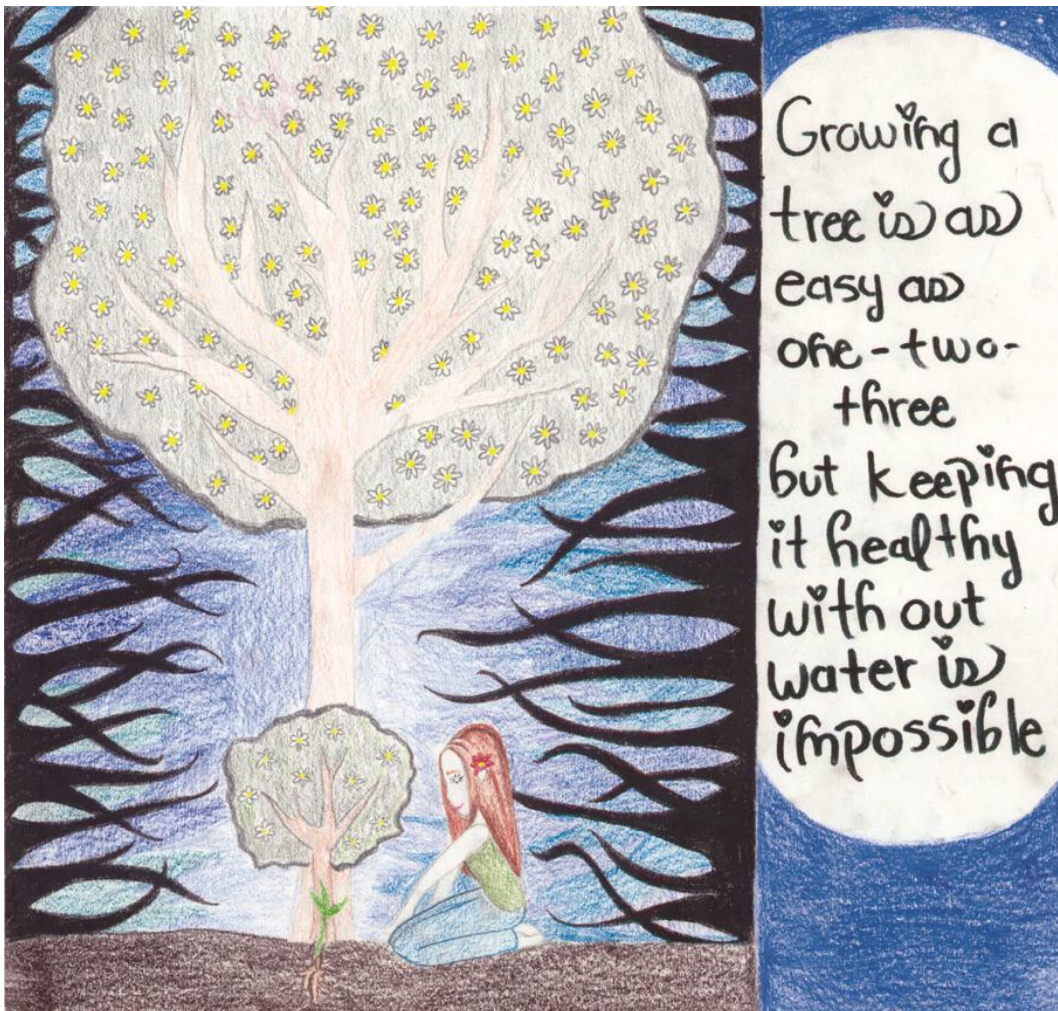 Growing a
tree is as
easy as
one-two-
three
but keeping
it healthy
with out
water is
impossible